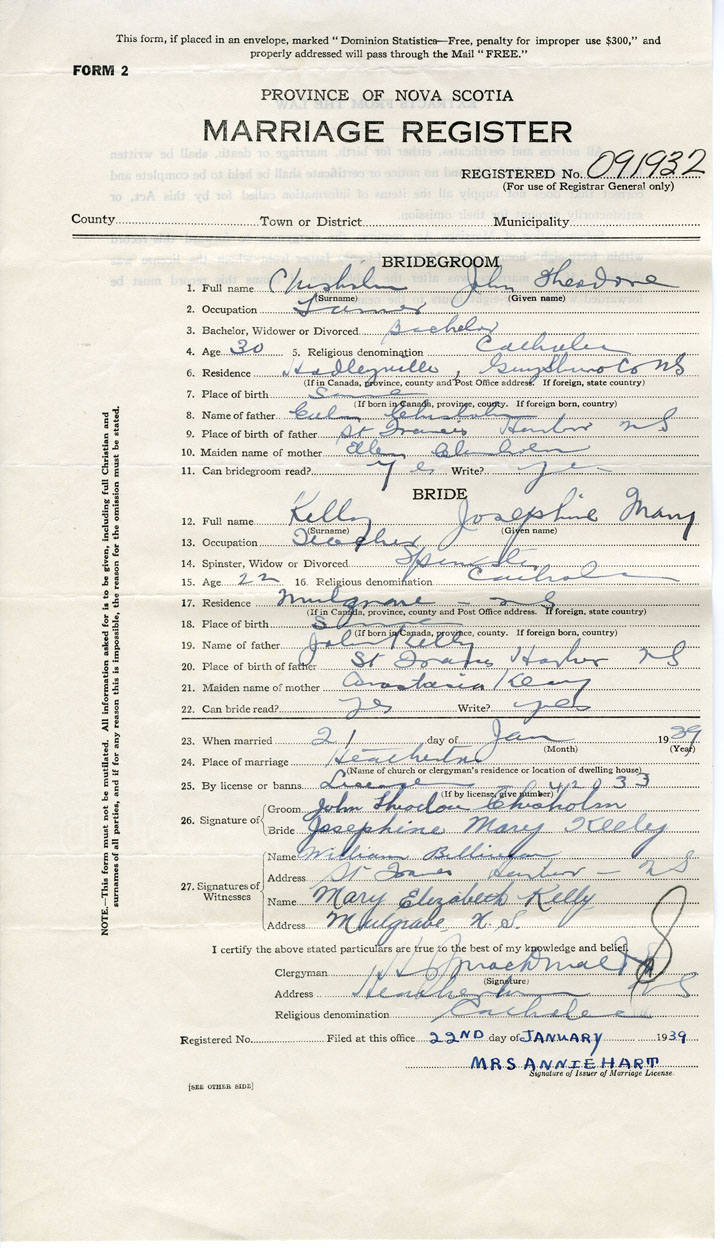 This form, if placed in an envelope, marked "Dominion Statistics—Free, penalty for improper use $300," and
properly addressed will pass through the Mail "FREE."
FORM 2
PROVINCE OF NOVA SCOTIA
MARRIAGE REGISTER
REGISTERED No. 091932
(For use of Registrar General only)
County Town or District Municipality
BRIDEGROOM
1. Full name Chisholm John Theodore
(Surname) (Given name)
2. Occupation
3. Bachelor, Widower or Divorced Bachelor
4. Age 30 5. Religious denomination Catholic
6. Residence Hadleyville, Guysboro Co NS
(If in Canada, province, county and Post Office address. If foreign, state country)
7. Place of birth Same
(If born in Canada, province, county. If foreign born, country)
8. Name of father Chisholm
9. Place of birth of father St Francis Harbor NS
10. Maiden name of mother Ellen Chisholm
11. Can bridegroom read? Yes Write? yes
BRIDE
12. Full name Kelly Josephine Mary
(Surname) (Given name)
13. Occupation Teacher
14. Spinster, Widow or Divorced Spinster
15. Age 22 16. Religious denomination Catholic
17. Residence Mulgrave - NS
(If in Canada, province, county and Post Office address. If foreign, state country)
18. Place of birth Same
(If born in Canada, province, county. If foreign born, country)
19. Name of father John Kelly
20. Place of birth of father St Francis Harbor NS
21. Maiden name of mother Anastasia Keay
22. Can bride read? yes Write? yes
23. When married 21 day of Jan 1939
(Month) (Year)
24. Place of marriage Heatherton
(Name of church or clergyman's residence or location of dwelling house)
25. By license or banns License 42033
(If by license, give number)
26. Signature of Groom John Theodore Chisholm
Bride Josephine Mary Kelly
27. Signatures of Witnesses
Name William
Address St Francis Harbor - NS
Name Mary Elizabeth Kelly
Address Mulgrave N.S.
I certify the above stated particulars are true to the best of my knowledge and belief.
Clergyman
(Signature)
Address Heatherton NS
Religious denomination Catholic
Registered No. Filed at this office 22ND day of JANUARY 1939
MRS ANNIE HART
Signature of Issuer of Marriage License.
[SEE OTHER SIDE]
NOTE.—This form must not be mutilated. All information asked for is to be given, including full Christian and
surnames of all parties, and if for any reason this is impossible, the reason for the omission must be stated.